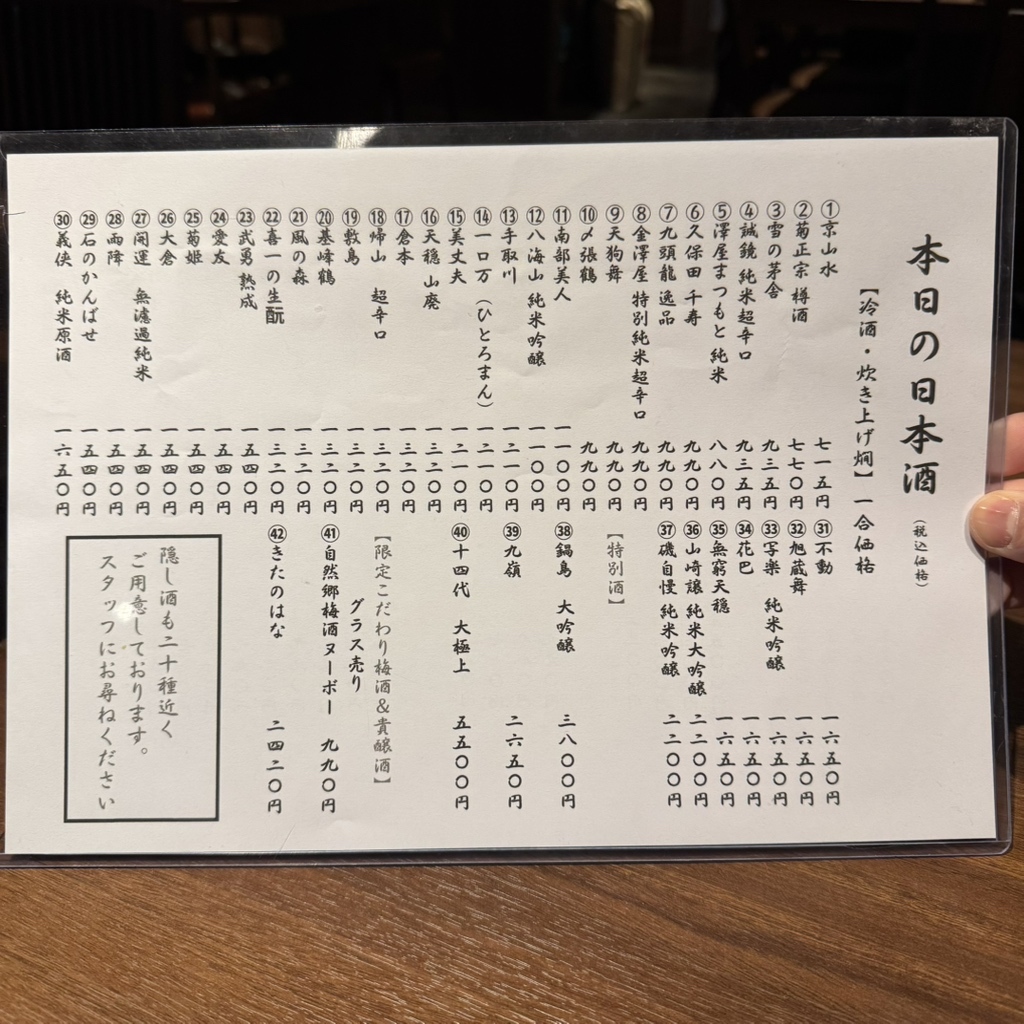 本日の日本酒（税込価格）
【冷酒・炊き上げ燗】一合価格
①京山水 七一五円
②菊正宗 樽酒 七七〇円
③雪の茅舎 九三五円
④誠鏡 純米超辛口 九三五円
⑤澤屋まつもと 純米 八八〇円
⑥久保田 千寿 九九〇円
⑦九頭龍 逸品 九九〇円
⑧金澤屋 特別純米 超辛口 九九〇円
⑨天狗舞 九九〇円
⑩〆張鶴 九九〇円
⑪南部美人 一一〇〇円
⑫八海山 純米吟醸 一一〇〇円
⑬手取川 一二一〇円
⑭一口万（ひとろまん） 一二一〇円
⑮美丈夫 一二一〇円
⑯天穏 山廃 一三二〇円
⑰倉本 一三二〇円
⑱帰山 超辛口 一三二〇円
⑲敷島 一三二〇円
⑳基峰鶴 一三二〇円
㉑風の森 一三二〇円
㉒喜一の生酛 一三二〇円
㉓武勇 熟成 一五四〇円
㉔愛友 一五四〇円
㉕菊姫 一五四〇円
㉖大倉 一五四〇円
㉗開運 無濾過純米 一五四〇円
㉘雨降 一五四〇円
㉙石のかんばせ 一五四〇円
㉚義侠 純米原酒 一六五〇円
㉛不動 一六五〇円
㉜旭蔵舞 一六五〇円
㉝写楽 純米吟醸 一六五〇円
㉞花巴 一六五〇円
㉟無窮天穏 一六五〇円
㊱山崎譲 純米大吟醸 二二〇〇円
㊲磯自慢 純米吟醸 二二〇〇円
【特別酒】
㊳鍋島 大吟醸 三八〇〇円
㊴九嶺 二六五〇円
㊵十四代 大極上 五五〇〇円
【限定こだわり梅酒＆貴醸酒】
グラス売り
㊶自然郷梅酒ヌーボー 九九〇円
㊷きたのはな 二四二〇円
隠し酒も二十種近く
ご用意しております。
スタッフにお尋ねください